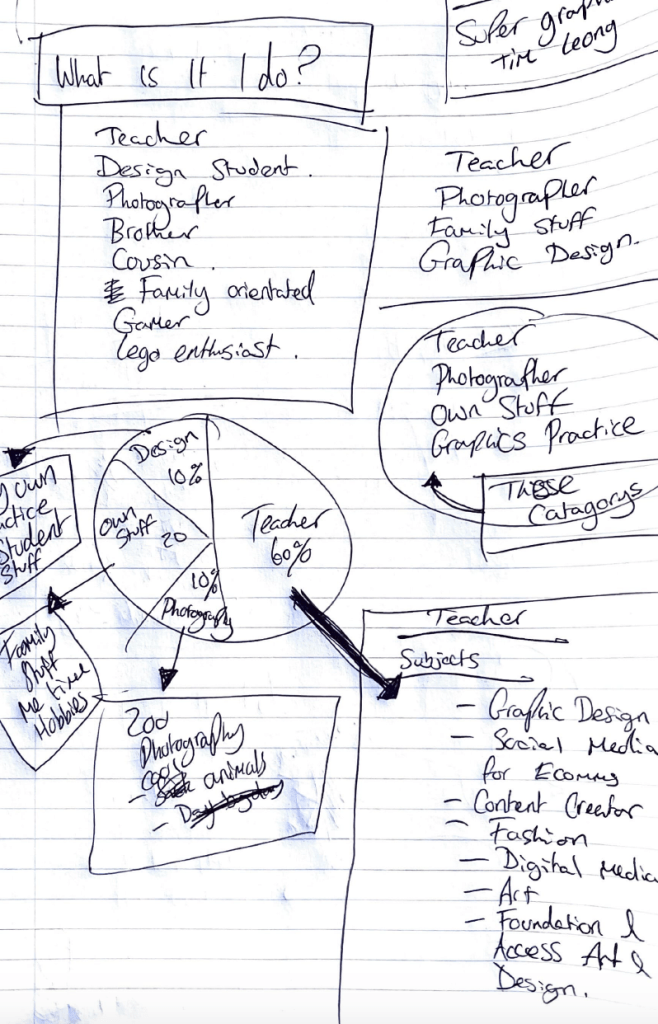 Super graph
Tim Leong
What is it I do?
Teacher
Design Student.
Photographer
Brother
Cousin.
Family orientated
Gamer
Lego enthusiast.
Teacher
Photographer
Family Stuff
Graphic Design.
Teacher
Photographer
Own Stuff
Graphics Practice
These
Catagorys
Design
10%
Own
Stuff
20
10%
Photography
Teacher
60%
own
actice
Student
Stuff
Family
Stuff
Me time
Hobbies
Zoo
Photography
Cool
- animals
- Day by day
Teacher
Subjects
- Graphic Design
- Social Media
for Ecomms
- Content Creator
- Fashion
- Digital Media
- Art
- Foundation &
Access Art &
Design.